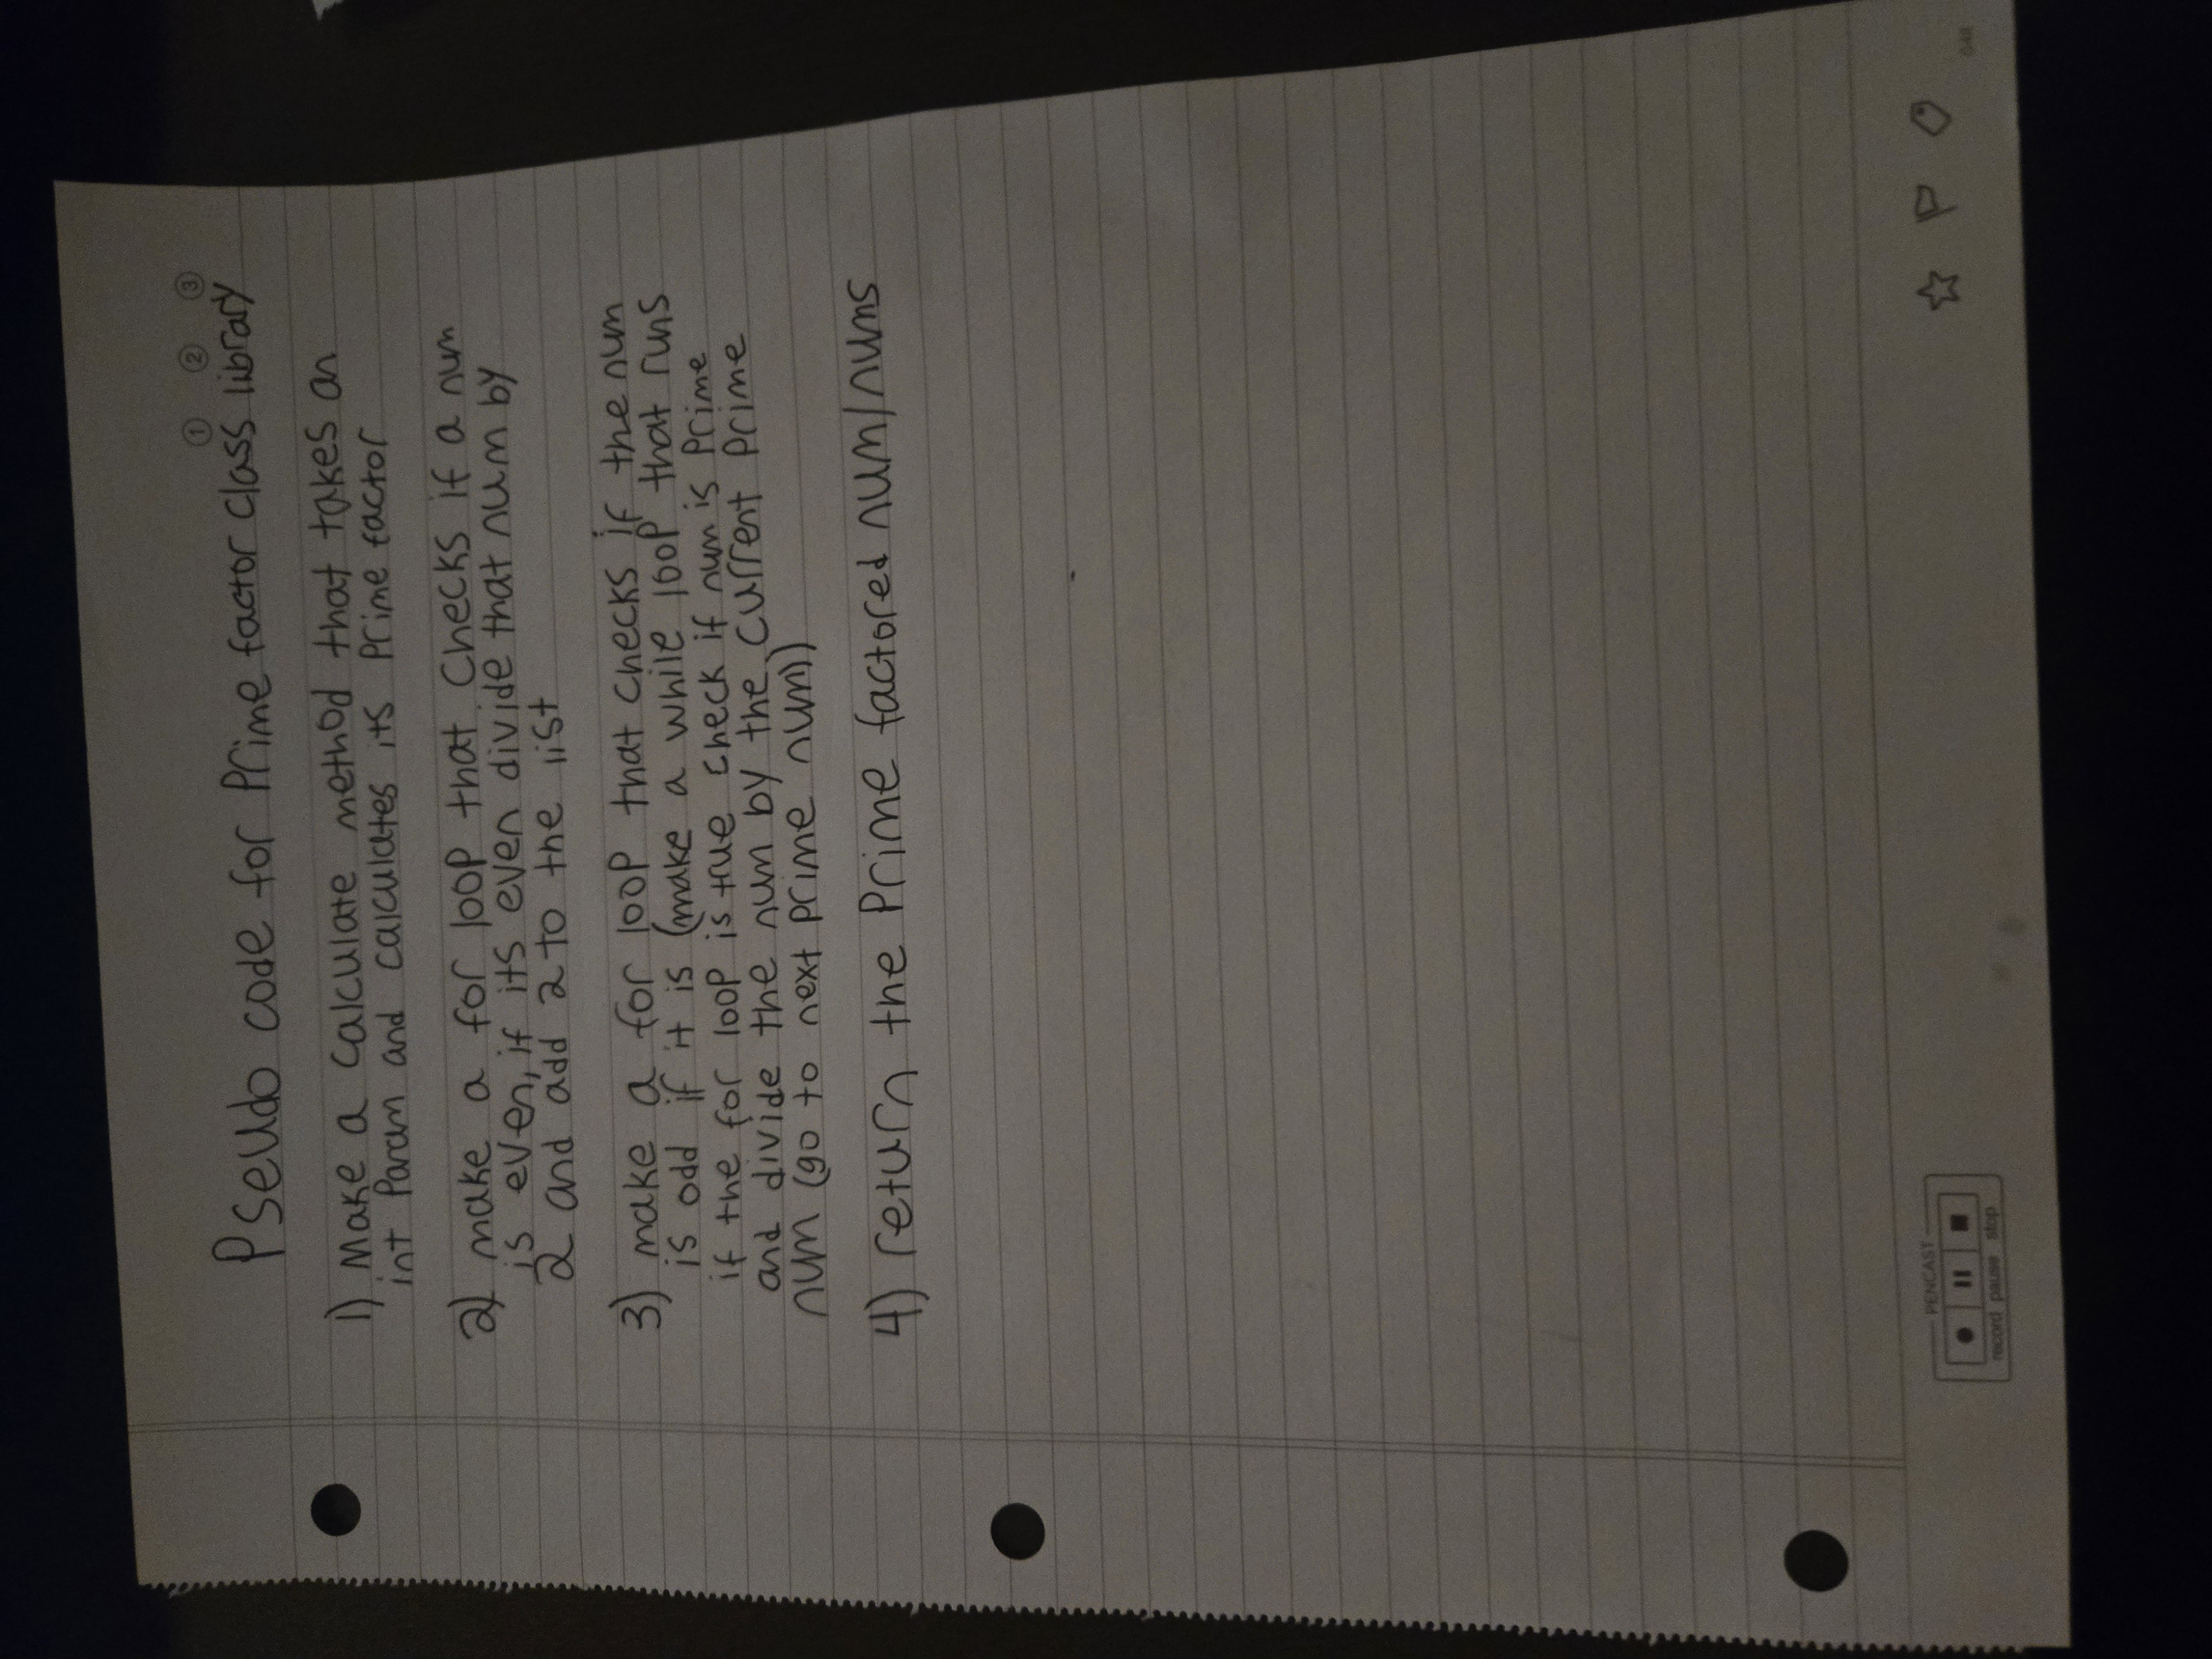 ① ② ③
Pseudo code for Prime factor class library
1) Make a calculate method that takes an
int Param and calculates its Prime factor
2) make a for loop that checks if a num
is even, if its even divide that num by
2 and add 2 to the list
3) make a for loop that checks if the num
is odd if it is (make a while loop that runs
if the for loop is true check if num is Prime
and divide the num by the current Prime
num (go to next prime num))
4) return the Prime factored num/nums
PENCAST
record pause stop